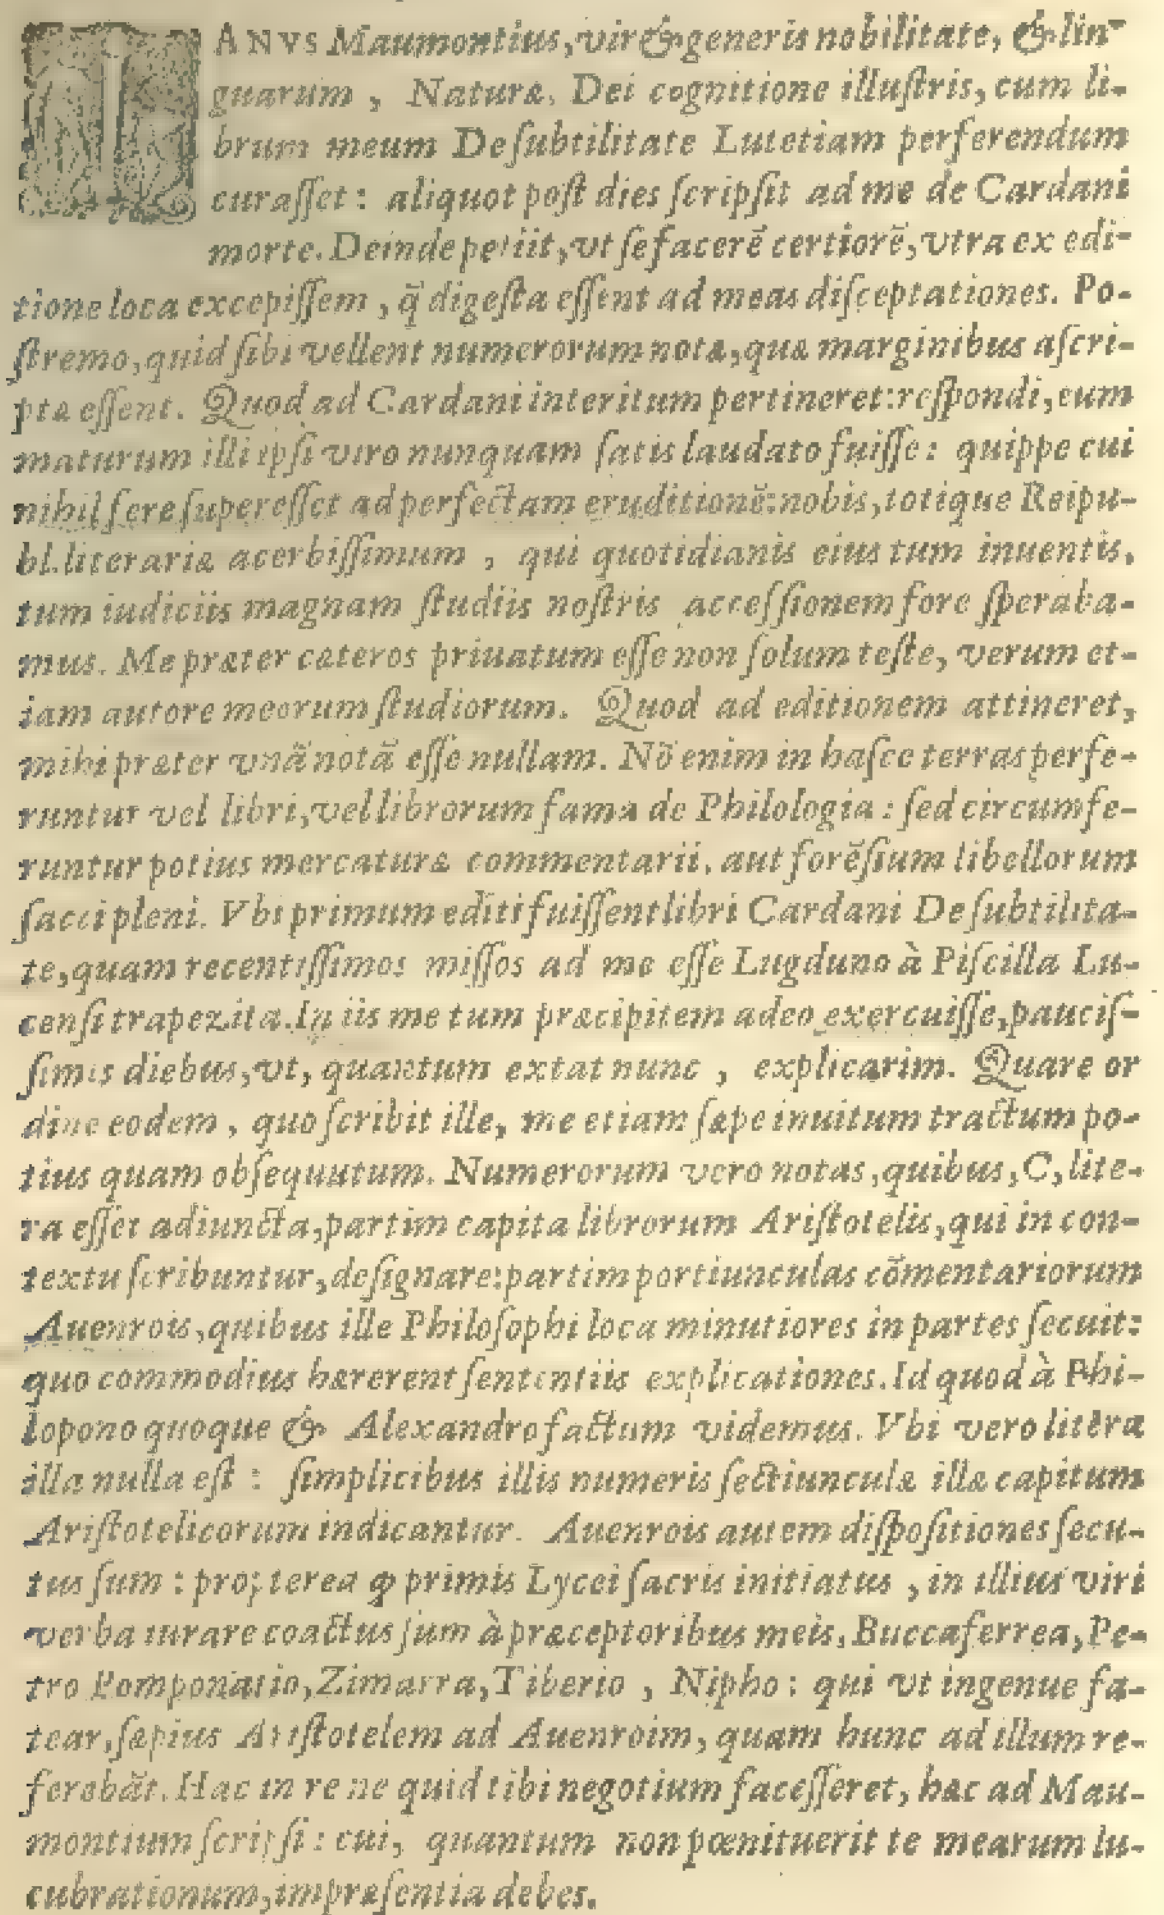 IANVS Maumontius, vir & generis nobilitate, & lin-
guarum, Naturæ, Dei cognitione illuſtris, cum li-
brum meum De ſubtilitate Lutetiam perferendum
curaſſet: aliquot poſt dies ſcripſit ad me de Cardani
morte. Deinde petiit, vt ſe facerẽ certiorẽ, vtra ex edi-
tione loca excepiſſem, q̃ digeſta eſſent ad meas diſceptationes. Po-
ſtremo, quid ſibi vellent numerorum notæ, quæ marginibus aſcri-
ptæ eſſent. Quod ad Cardani interitum pertineret: reſpondi, eum
maturum illi ipſi viro nunquam ſatis laudato fuiſſe: quippe cui
nihil fere ſupereſſet ad perfectam eruditionẽ: nobis, totique Reipu-
bl. literariæ acerbiſſimum, qui quotidianis eius tum inuentis,
tum iudiciis magnam ſtudiis noſtris acceſſionem fore ſperaba-
mus. Me præter cæteros priuatum eſſe non ſolum teſte, verum et-
iam autore meorum ſtudiorum. Quod ad editionem attineret,
mihi præter vnã notã eſſe nullam. Nõ enim in haſce terras perfe-
runtur vel libri, vel librorum fama de Philologia: ſed circumfe-
runtur potius mercaturæ commentarii, aut forẽſium libellorum
ſacci pleni. Vbi primum editi fuiſſent libri Cardani De ſubtilita-
te, quam recentiſſimos miſſos ad me eſſe Lugduno à Piſcilla Lu-
cenſi trapezita. In iis me tum præcipitem adeo exercuiſſe, pauciſ-
ſimis diebus, vt, quantum extat nunc, explicarim. Quare or
dine eodem, quo ſcribit ille, me etiam ſæpe inuitum tractum po-
tius quam obſequutum. Numerorum vero notas, quibus, C, lite-
ra eſſet adiuncta, partim capita librorum Ariſtotelis, qui in con-
textu ſcribuntur, deſignare: partim portiunculas cõmentariorum
Auenrois, quibus ille Philoſophi loca minutiores in partes ſecuit:
quo commodius hærerent ſententiis explicationes. Id quod à Phi-
lopono quoque & Alexandro factum videmus. Vbi vero litera
illa nulla eſt: ſimplicibus illis numeris ſectiunculæ illæ capitum
Ariſtotelicorum indicantur. Auenrois autem diſpoſitiones ſecu-
tus ſum: propterea ꝙ primis Lycei ſacris initiatus, in illius viri
verba iurare coactus ſum à præceptoribus meis, Buccaferrea, Pe-
tro Pomponatio, Zimarra, Tiberio, Nipho: qui vt ingenue fa-
tear, ſæpius Ariſtotelem ad Auenroim, quam hunc ad illum re-
ferebãt. Hac in re ne quid tibi negotium faceſſeret, hæc ad Mau-
montium ſcripſi: cui, quantum non pœnituerit te mearum lu-
cubrationum, impræſentia debes.